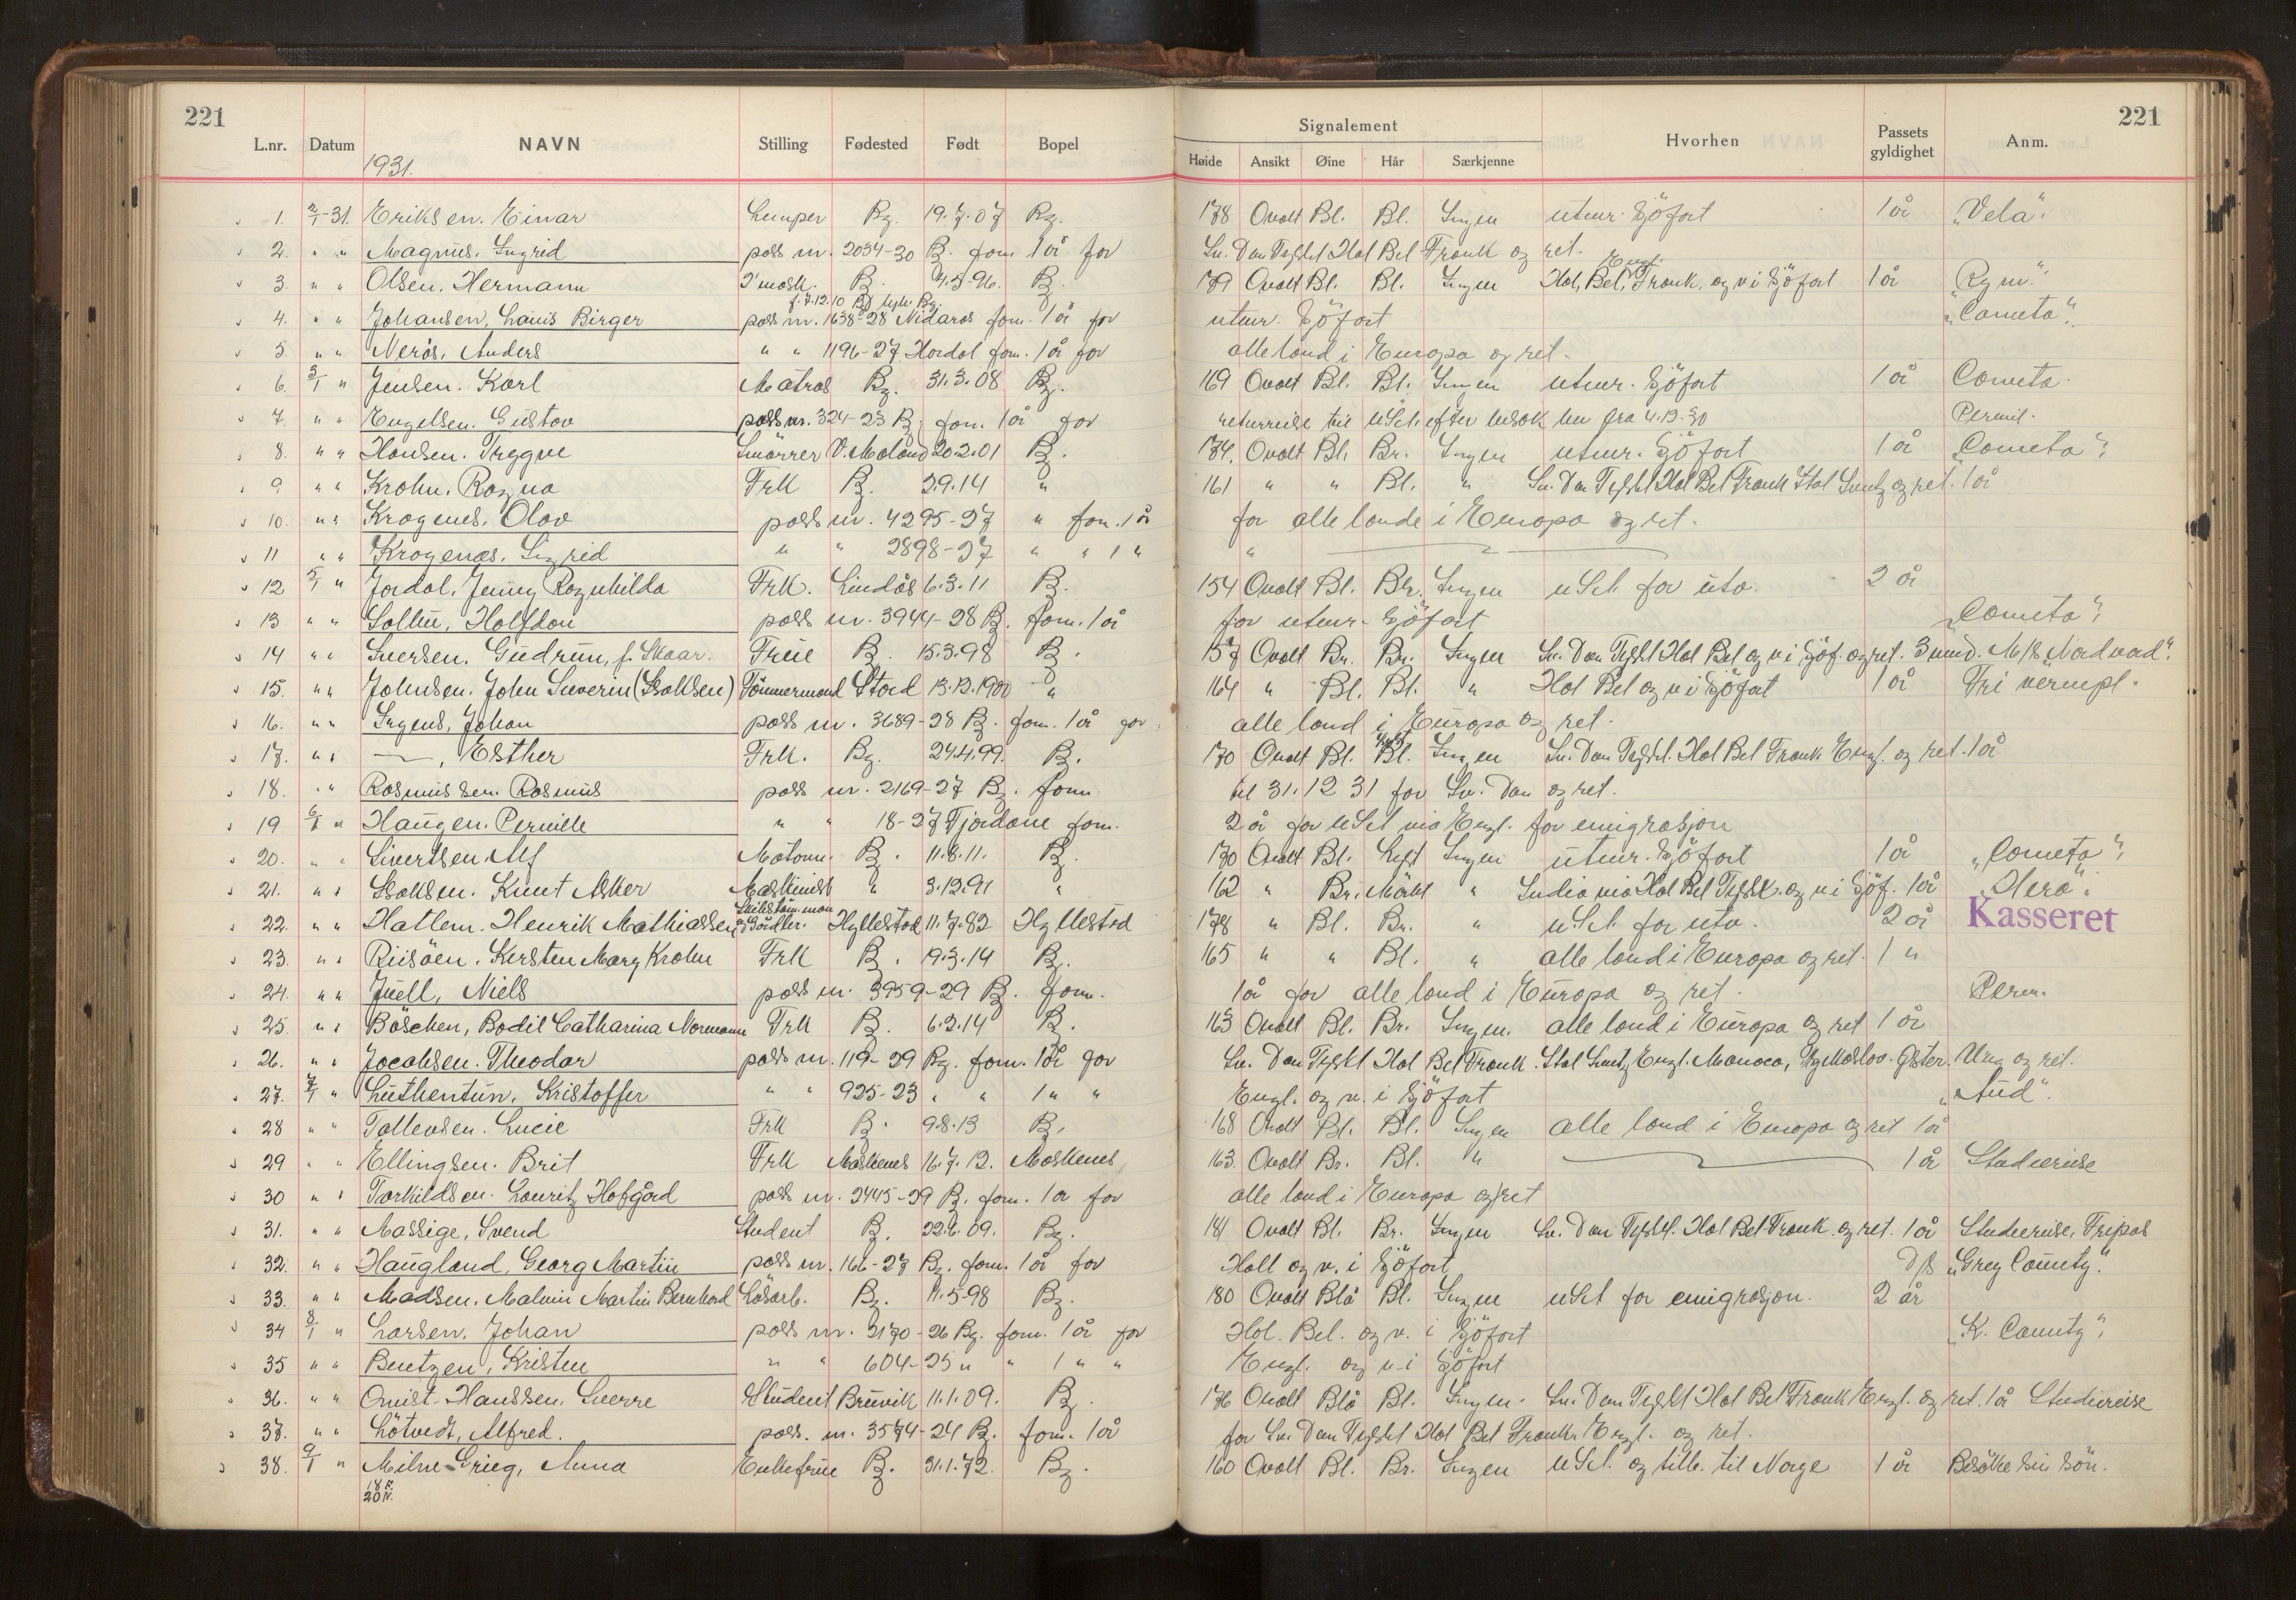 221
221
L.nr. Datum NAVN Stilling Fødested Født Bopel
Signalement
Høide Ansikt Øine Hår Særkjenne Hvorhen Passets gyldighet Anm.
1931.
1. 2/1-31. Eriksen. Einar Lemper Bg. 19.7.07 Bg. 178 Ovalt Bl. Bl. Ingen uteur. Sjöfart 1 år „Vela“.
2. " " Magnus. Ingrid pass nr. 2034-30 B. forn. 1 år for Sv. Dan Tyskl Hol Bel Frank og ret.
3. " " Olsen. Hermann 2'mask. B. 4.5.96. B. 179 Ovalt Bl. Bl. Ingen Hol, Bel, Frank. Engl. og v i Sjöfart 1 år „Rym“.
f. 7.12.10
4. " " Johansen, Lauis Birger pass nr. 1638-28 Nidaros forn. 1 år for uteur. Sjöfart „Cometa“.
5. " " Nerås, Anders " " 1196-27 Hordal forn. 1 år for alle land i Europa og ret.
6. 3/1 " Jensen. Karl Matros Bg. 31.3.08 Bg. 169 Ovalt Bl. Bl. Ingen uteur. Sjöfart 1 år Cometa.
7. " " Engelsen. Gustav pass nr. 324-23 B. forn. 1 år for returreise til USA. efter besök her fra 4.12.30 Permit.
8. " " Hansen. Tryggve Smörrer V. Moland 20.2.01 B. 174. Ovalt Bl. Br. Ingen uteur. Sjöfart 1 år „Cometa“.
9. " " Krohn. Ragna Frk B. 2.9.14 " 161 " " Bl. " Sv. Dan Tyskl Hol Bel Frank Ital Sveitz og ret. 1 år
10. " " Krogenes. Olav pass nr. 4295-27 " forn. 1 år for alle lande i Europa og ret.
11 " " Krogenæs. Sigrid " " 2898-27 " " 1 " "
12 5/1 " Jordal. Jenny Ragnhilda Frk. Lindås 6.3.11 B. 154 Ovalt Bl. Br. Ingen USA for utv. 2 år
13 " " Sollie, Halfdan pass nr. 3944-28 B. forn. 1 år for uteur. Sjöfart „Cometa“.
14 " " Iversen. Gudrun, f. Skaar. Frue B. 15.3.98 B. 157 Ovalt Br. Br. Ingen Sv. Dan Tyskl Hol Bel og v i Sjöf. og ret. 3 mnd. M/S Nordvard“.
15. " " Johnsen. John Severin (Isaksen) Tömmermand Stord 13.12.1900 " 164 " Bl. Bl. " Hol Bel og v i Sjöfart 1 år Fri vernepl.
16. " " Irgens, Johan pass nr. 3689-28 B. forn. 1 år for alle land i Europa og ret.
17. " " —, Esther Frk. Bg. 24.4.99. B. 170 Ovalt Bl. Bl. Ingen Sv. Dan Tyskl. Hol Bel Frank Engl. og ret. 1 år
18. " " Rasmussen. Rasmus pass nr. 2169-27 B. forn til 31.12 31 for Sv. Dan og ret.
19 6/1 " Haugen. Pernille " " 18-27 Fjordane forn. 2 år for USA via Engl. for emigrasjon
20. " " Sivertsen. Alf Matroun. B. 11.8.11. B. 170 Ovalt Bl. Lyst Ingen uteur. Sjöfart 1 år „Cometa“.
21. " " Isaksen. Knut Asker Maskinist " 3.12.91 " 162 " Br. Mörkt " India via Hol Bel Tyskl. og v i Sjöf. 1 år „Hera“.
22. " " Hatlem. Henrik Mathiassen Gårdbr. Hyllestad 11.7.82 Hyllestad 178 " Bl. Br. " USA for utv. 2 år Kasseret
23. " " Riisöen. Kirsten Mary Krohn Frk B. 19.3.14 B. 165 " " Bl. " alle land i Europa og ret. 1 "
24. " " Juell, Niels pass nr. 3959-29 B. forn. 1 år for alle land i Europa og ret. Perm.
25. " " Böschen, Bodil Catharina Normann Frk B. 6.2.14 B. 163 Ovalt Bl. Br. Ingen. alle land i Europa og ret 1 år
26. " " Jacobsen. Theodor pass nr. 119-29 Bg. forn. 1 år for Sv. Dan Tyskl Hol Bel Frank. Ital Sveitz Engl. Monaco, Tsjekkoslov. Øster. Ung og ret.
27. 7/1 " Luthentun, Kristoffer " " 925-23 " " 1 " " Engl. og v. i Sjöfart „Aud“.
28 " " Tollevsen. Lucie Frk B. 9.8.13 B. 168 Ovalt Bl. Bl. Ingen alle land i Europa og ret 1 år
29 " " Ellingsen. Brit Frk Moskenes 16.7.12. Moskenes 163. Ovalt Br. Bl. " 1 år Studiereise
30 " " Torkildsen. Lauritz Hofgård pass nr. 2445-29 B. forn. 1 år for alle land i Europa og ret
31. " " Massige, Svend Student B. 22.6.09. Bg. 181 Ovalt Bl. Br. Ingen Sv. Dan Tyskl. Hol Bel Frank. og ret. 1 år Studiereise, Fripas
32. " " Haugland, Georg Martin pass nr. 166-27 Bg. forn. 1 år for Holl og v. i Sjöfart D/S „Grey County“.
33. " " Madsen. Malvin Martin Bernhard Lösarb. Bg. 11.5.98 Bg. 180 Ovalt Blå Bl. Ingen USA for emigrasjon. 2 år
34 8/1 " Larsen. Johan pass nr. 3170-26 Bg. forn. 1 år for Hol. Bel. og v. i Sjöfart „K. County“.
35 " " Bentzen, Kristen " " 604-25 " " 1 " " Engl. og v i Sjöfart
36. " " Qvist-Hanssen. Sverre Student Bruvik 11.1.09. Bg. 176 Ovalt Blå Bl. Ingen. Sv. Dan Tyskl Hol Bel Frank Engl. og ret. 1 år Studiereise
37. " " Lötvedt, Alfred. pass. nr. 3574-24 B. forn. 1 år for Sv. Dan Tyskl Hol Bel Frank. Engl. og ret.
38. 9/1 " Milne-Grieg, Anna Enkefrue B. 31.1.72. Bg. 160 Ovalt Bl. Br. Ingen USA. og tilb. til Norge 1 år Besöke sin sön.
18 F.
20 N.